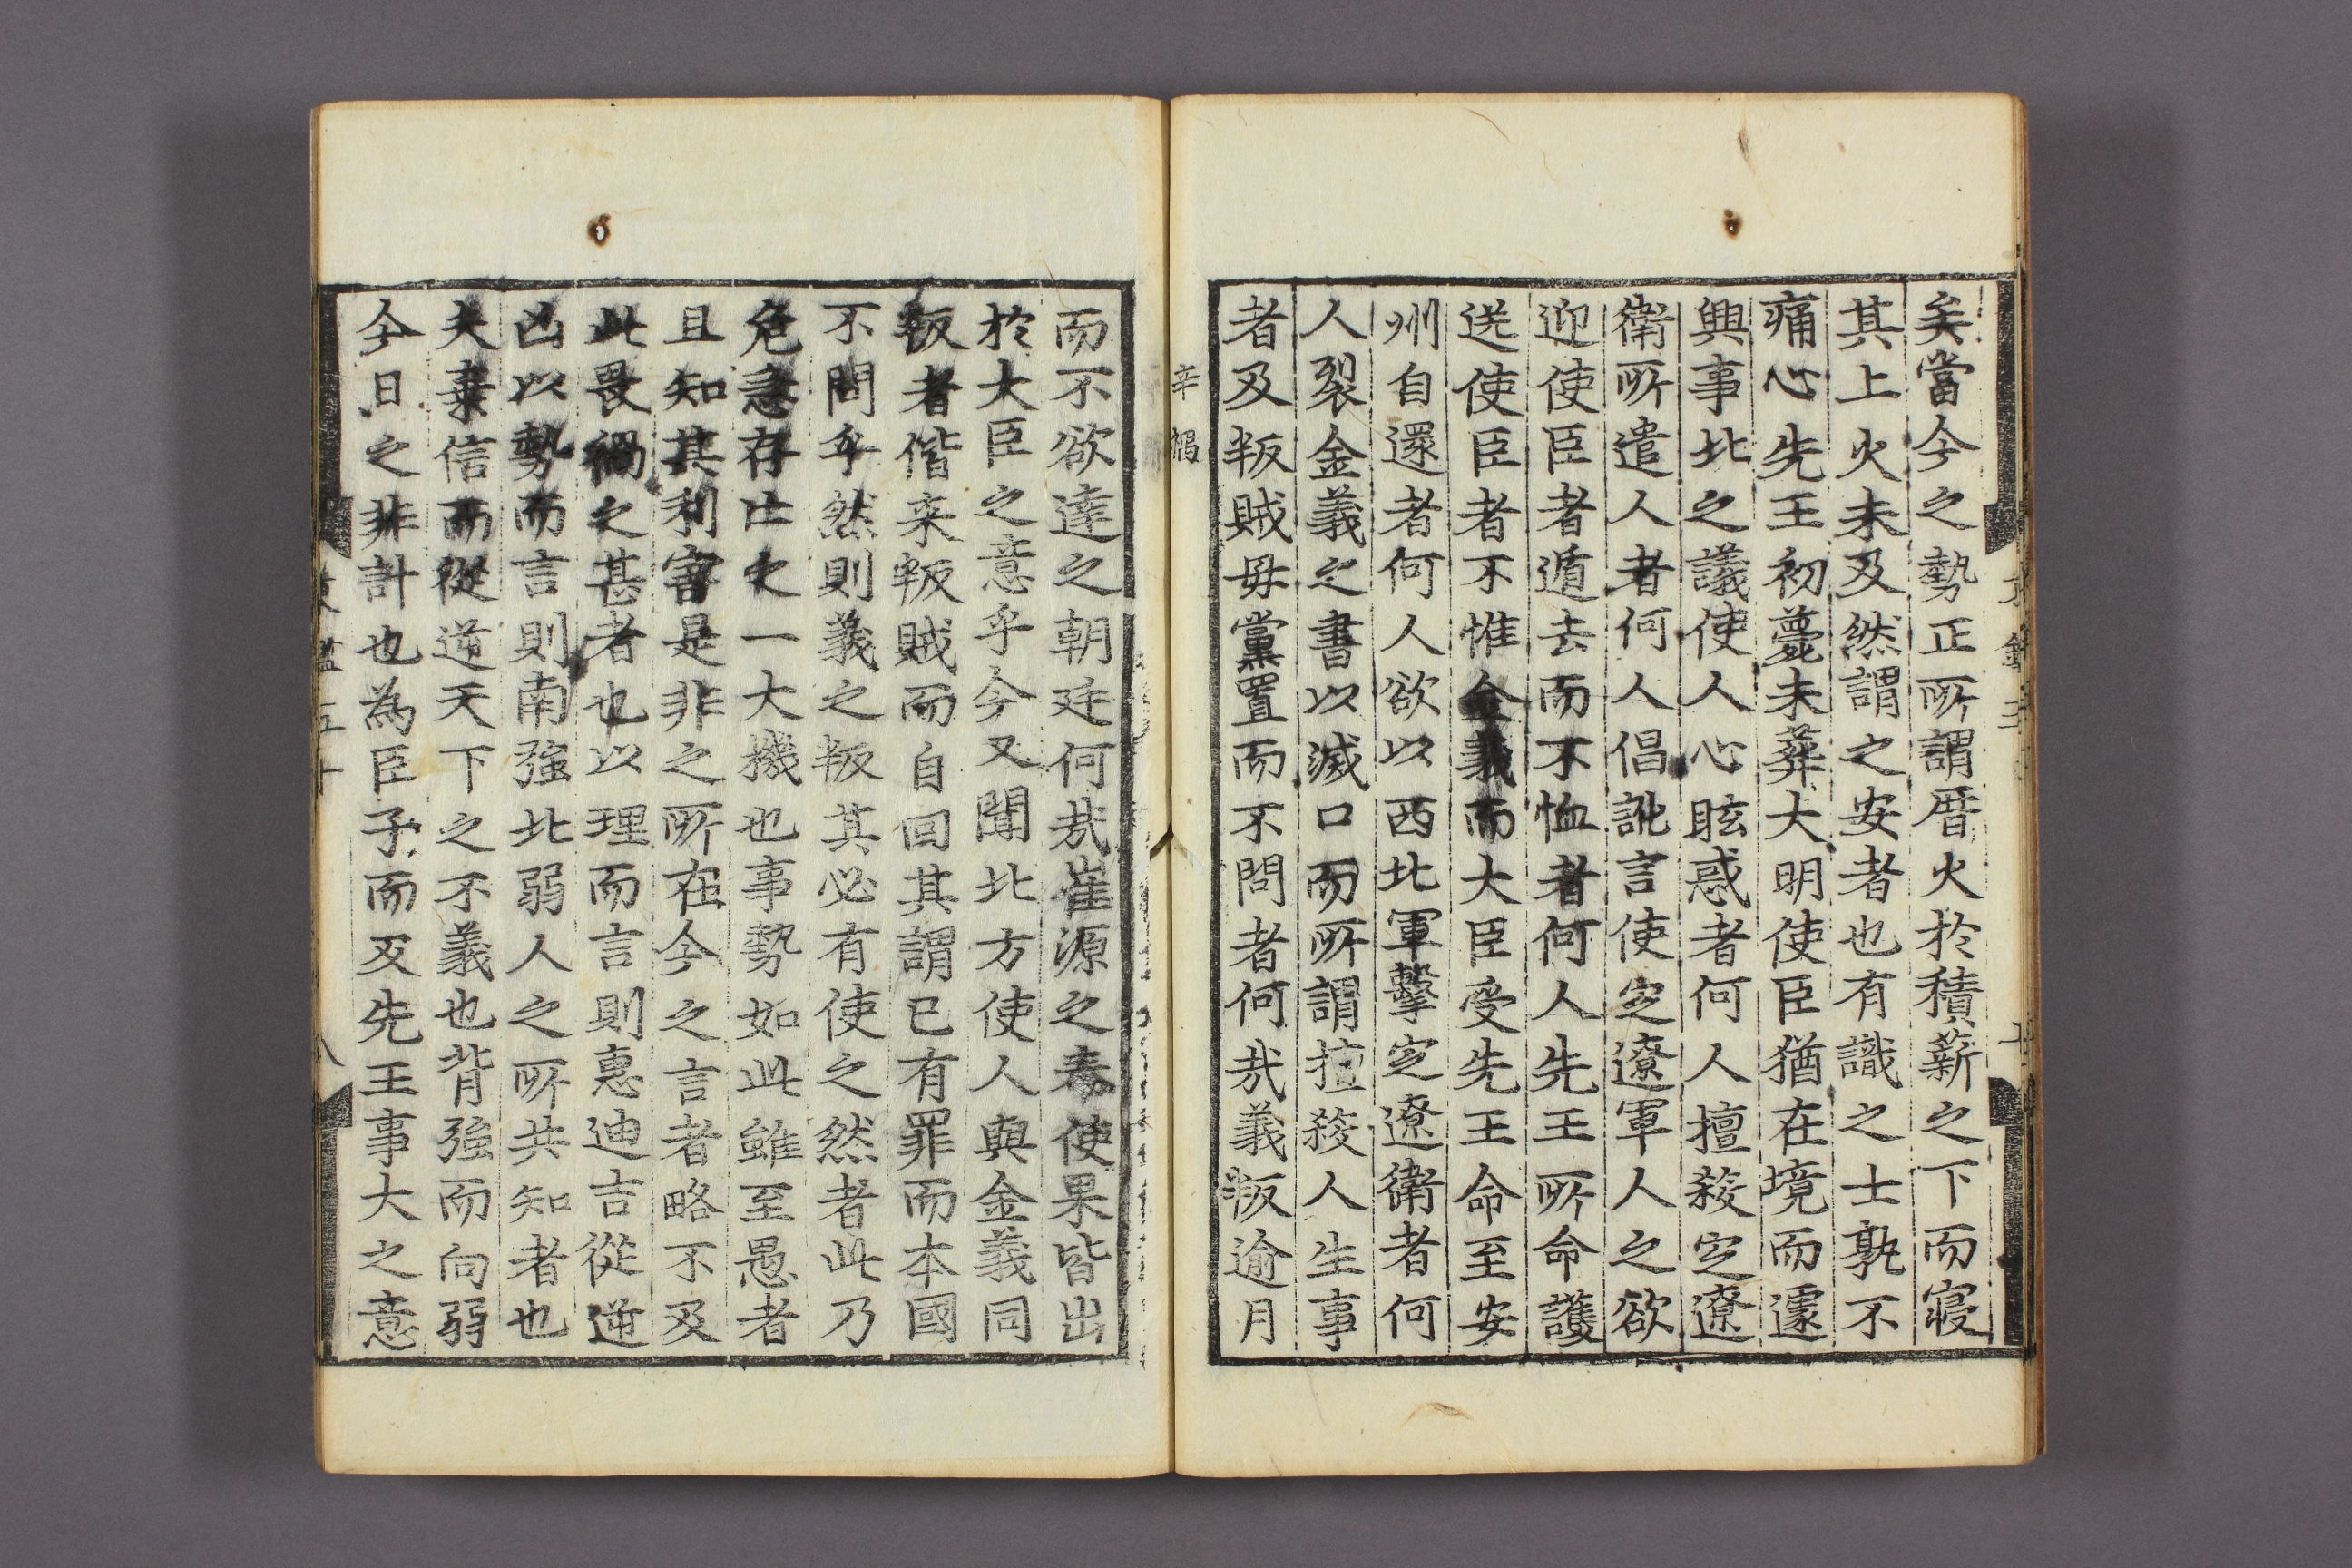 矣當今之勢正所謂厝火於積薪之下而寢
其上火未及然謂之安者也有識之士孰不
痛心先王初薨未葬大明使臣猶在境而遽
興事北之議使人心眩惑者何人擅殺定遼
衛所遣人者何人倡訛言使定遼軍人之欲
迎使臣者遁去而不恤者何人先王所命護
送使臣者不惟金義而大臣受先王命至安
州自還者何人欲以西北軍擊定遼衛者何
人裂金義之書以滅口而所謂擅殺人生事
者及叛賊毋黨置而不問者何哉義叛逾月
辛禑
而不欲達之朝廷何哉崔源之奉使果皆出
於大臣之意乎今又聞北方使人與金義同
叛者偕来叛賊而自回其謂已有罪而本國
不問乎然則義之叛其必有使之然者此乃
危急存亡之一大機也事勢如此雖至愚者
且知其利害是非之所在今之言者略不及
此畏禍之甚者也以理而言則惠迪吉從逆
凶以勢而言則南強北弱人之所共知者也
夫棄信而從逆天下之不義也背強而向弱
今日之非計也為臣子而反先王事大之意